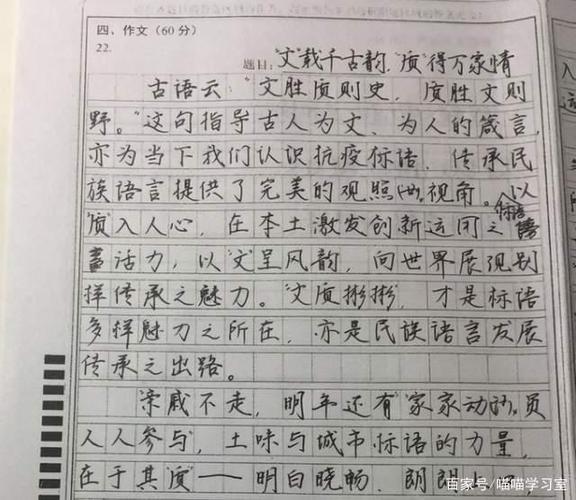 四、作文(60分)
22.
题目:“文”载千古韵,“质”得万家情
古语云:“文胜质则史,质胜文则
野。”这句指导古人为文、为人的箴言,
亦为当下我们认识抗疫标语、传承民
族语言提供了完美的观照视角。以
“质”入人心,在本土激发创新运用之标语
活力,以“文”呈风韵,向世界展现别
样传承之魅力。“文质彬彬”,才是标语
多样魅力之所在,亦是民族语言发展
传承之出路。
“亲戚不走,明年还有”“家家动员,
人人参与”,土味与城市标语的力量,
在于其“质”——明白晓畓、朗朗上口,
百家号/喵喵学习室